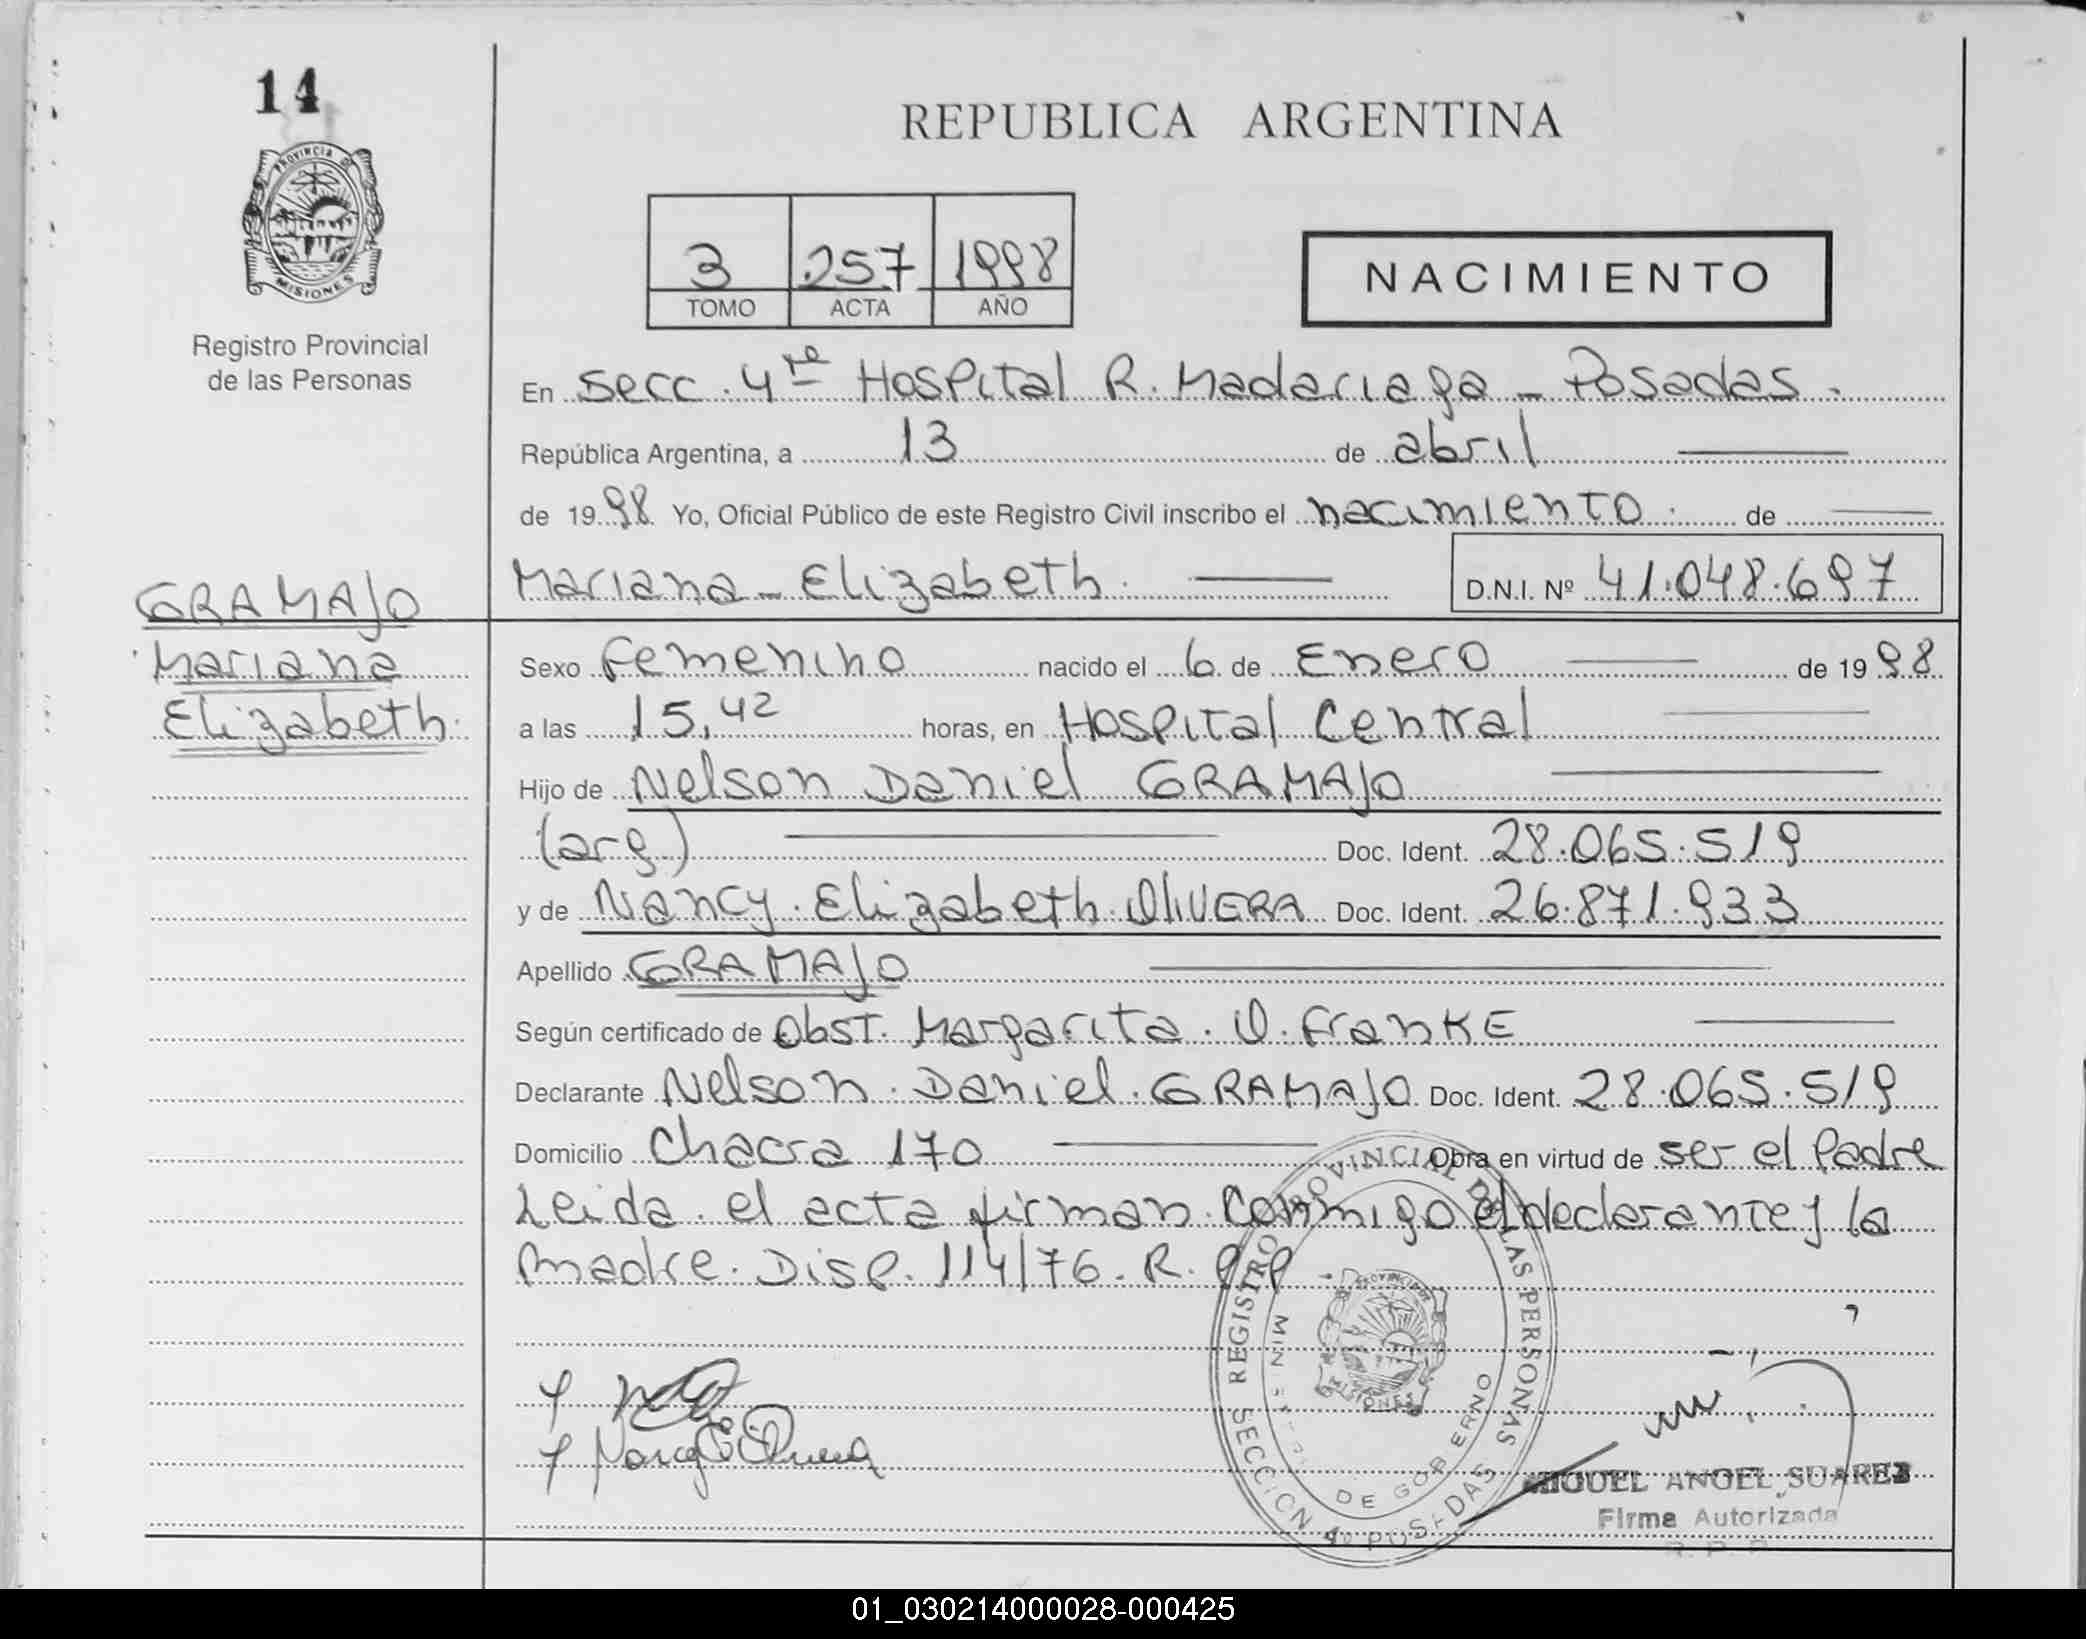 14
PROVINCIA D
MISIONES
Registro Provincial
de las Personas
REPUBLICA ARGENTINA
3 257 1998
TOMO ACTA AÑO
NACIMIENTO
En Secc. 4ta Hospital R. Madariaga - Posadas.
República Argentina, a 13 de abril
de 1998 Yo, Oficial Público de este Registro Civil inscribo el nacimiento de
Mariana - Elizabeth. D.N.I. Nº 41.048.697
GRAMAJO
Mariana
Elizabeth.
Sexo femenino nacido el 6 de Enero de 1998
a las 15,42 horas, en Hospital Central
Hijo de Nelson Daniel GRAMAJO
(arg.) Doc. Ident. 28.065.519
y de Nancy Elizabeth OliVERA Doc. Ident. 26.871.933
Apellido GRAMAJO
Según certificado de Obst. Margarita. O. FranKE
Declarante Nelson Daniel GRAMAJO Doc. Ident. 28.065.519
Domicilio Chacra 170 Obra en virtud de ser el Padre
Leida el acta firman conmigo el declarante y la
madre. Disp. 114/76. R. PP
REGISTRO PROVINCIAL DE LAS PERSONAS
DE GOBIERNO
MISIONES
SECCION 4º POSADAS
MIGUEL ANGEL SUAREZ
Firma Autorizada
R. P. P.
01_030214000028-000425